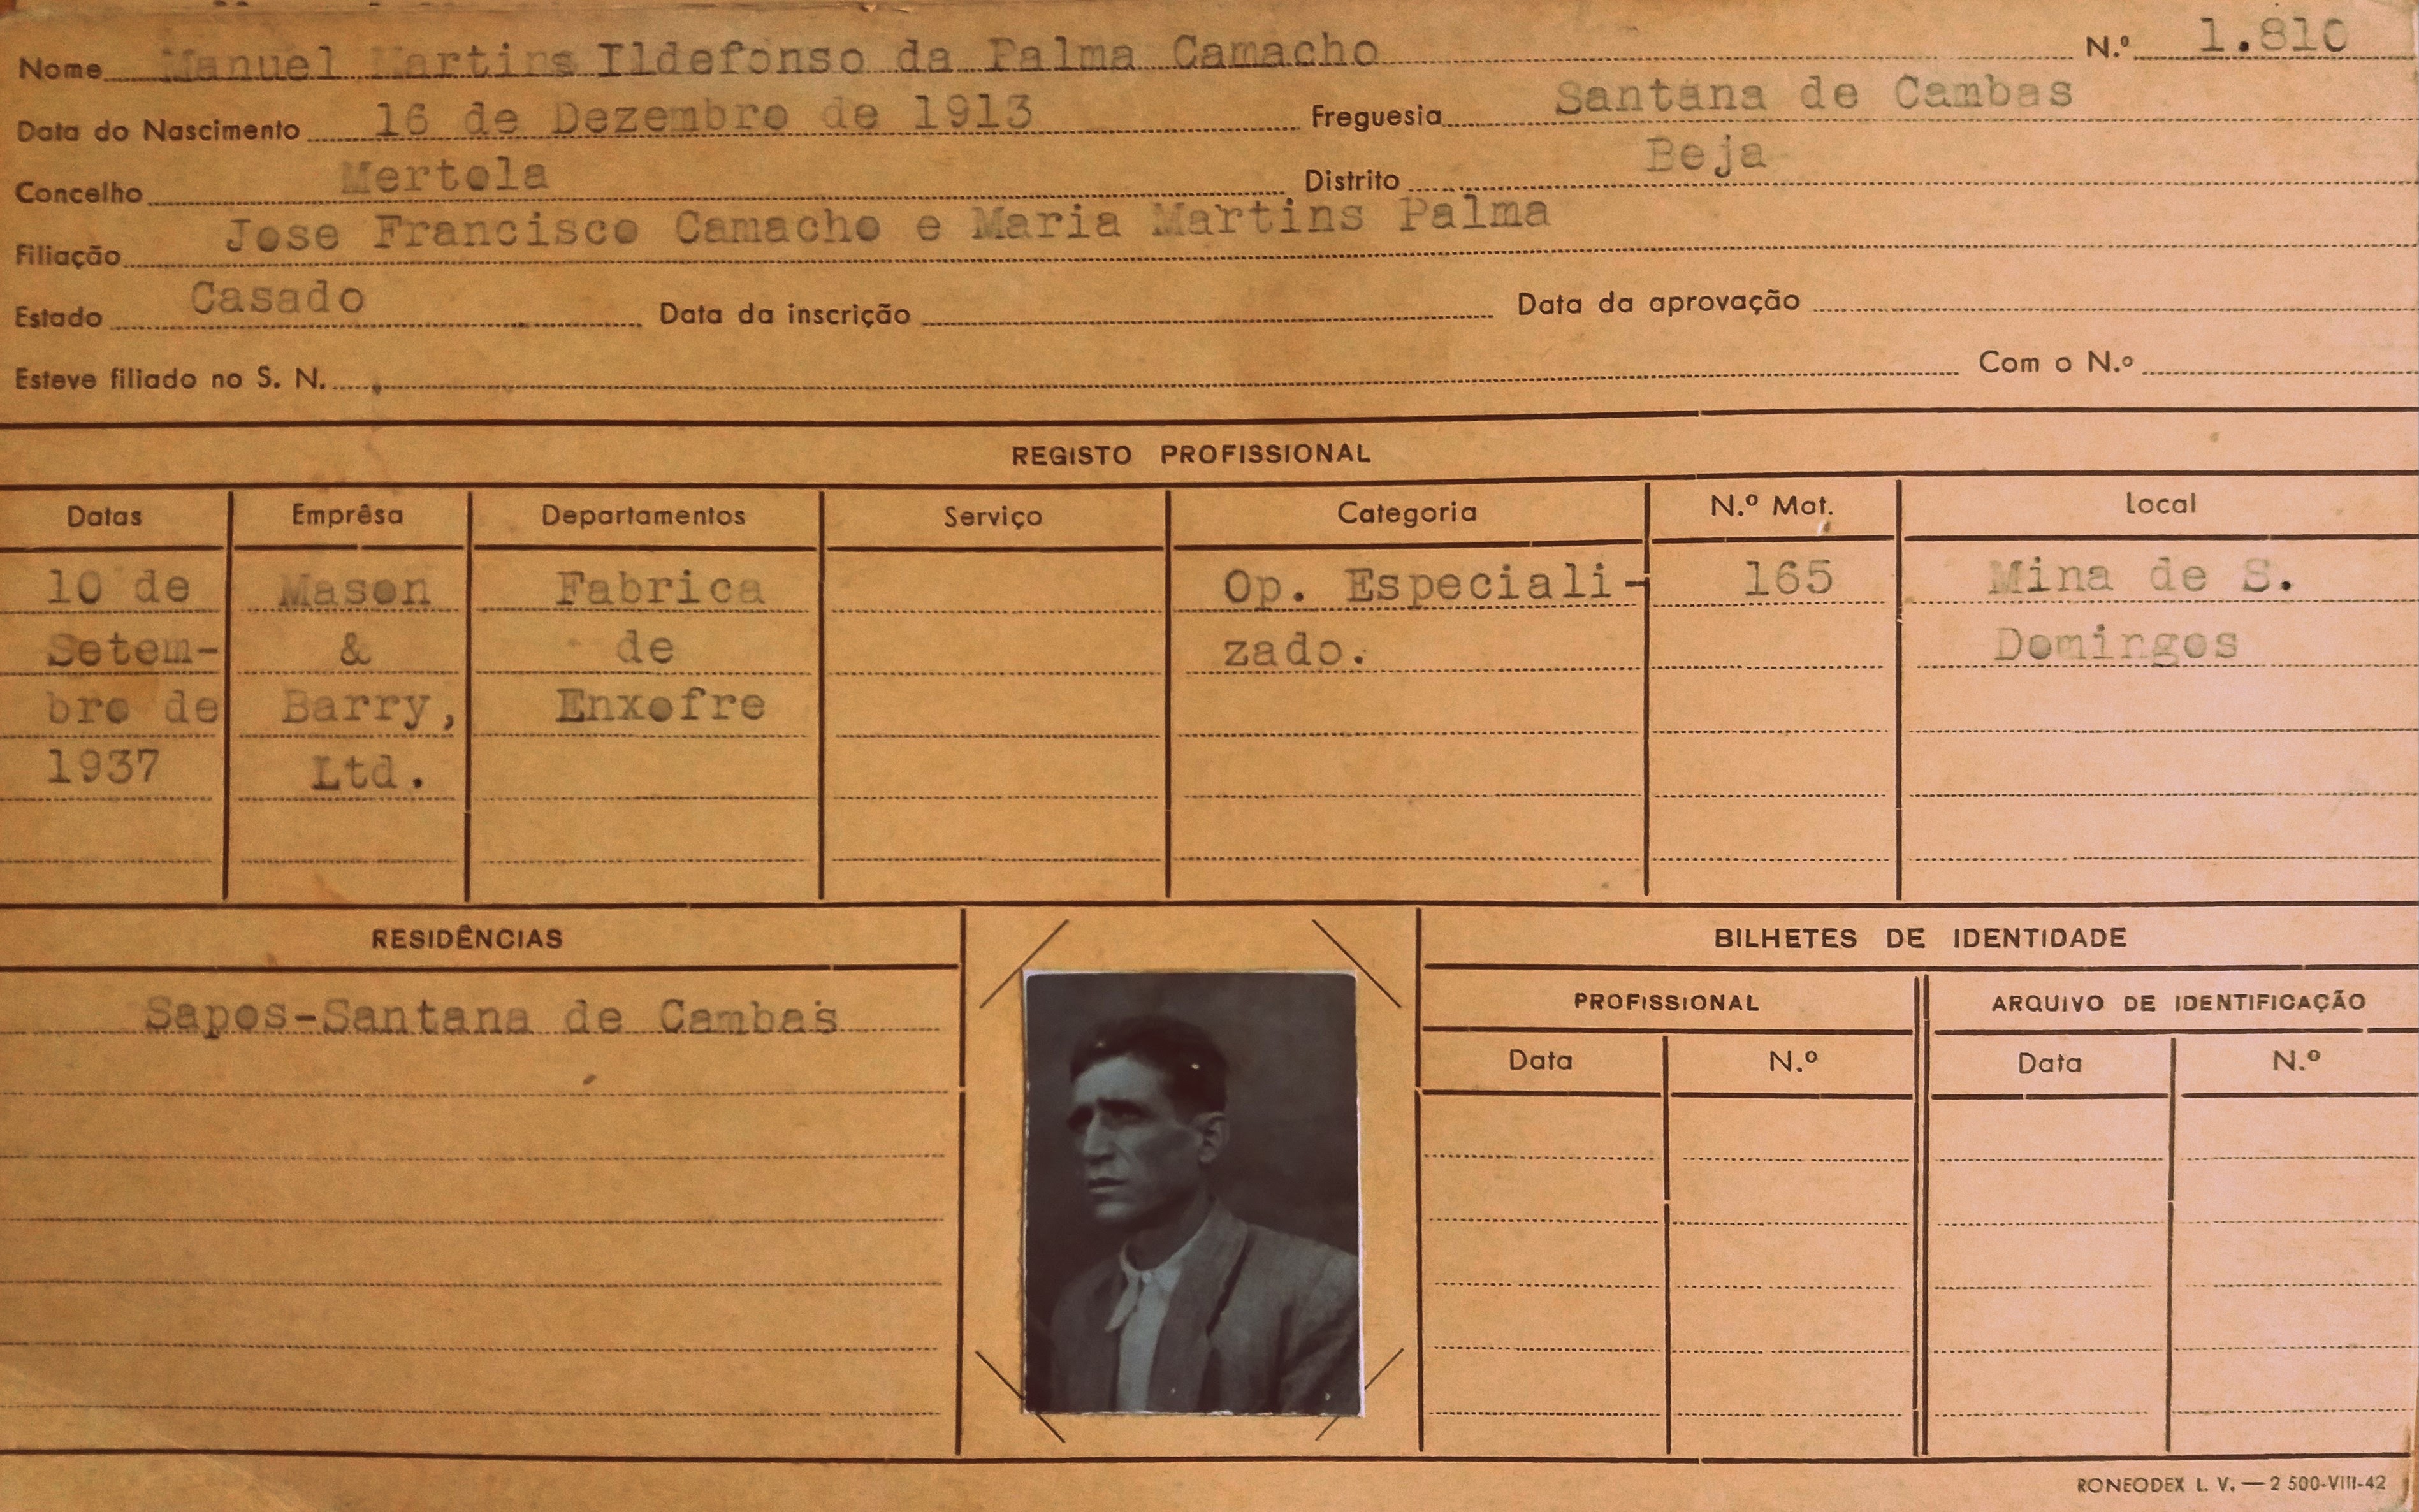 Nome Manuel Martins Ildefonso da Palma Camacho N.º 1.810
Data do Nascimento 16 de Dezembro de 1913 Freguesia Santana de Cambas
Concelho Mertola Distrito Beja
Filiação Jose Francisco Camacho e Maria Martins Palma
Estado Casado Data da inscrição Data da aprovação
Esteve filiado no S. N. Com o N.º
REGISTO PROFISSIONAL
Datas Emprêsa Departamentos Serviço Categoria N.º Mat. Local
10 de Mason Fabrica Op. Especiali- 165 Mina de S.
Setem- & de zado. Domingos
bro de Barry, Enxofre
1937 Ltd.
RESIDÊNCIAS BILHETES DE IDENTIDADE
Sapos-Santana de Cambas PROFISSIONAL ARQUIVO DE IDENTIFICAÇÃO
Data N.º Data N.º
RONEODEX L. V. — 2 500-VIII-42